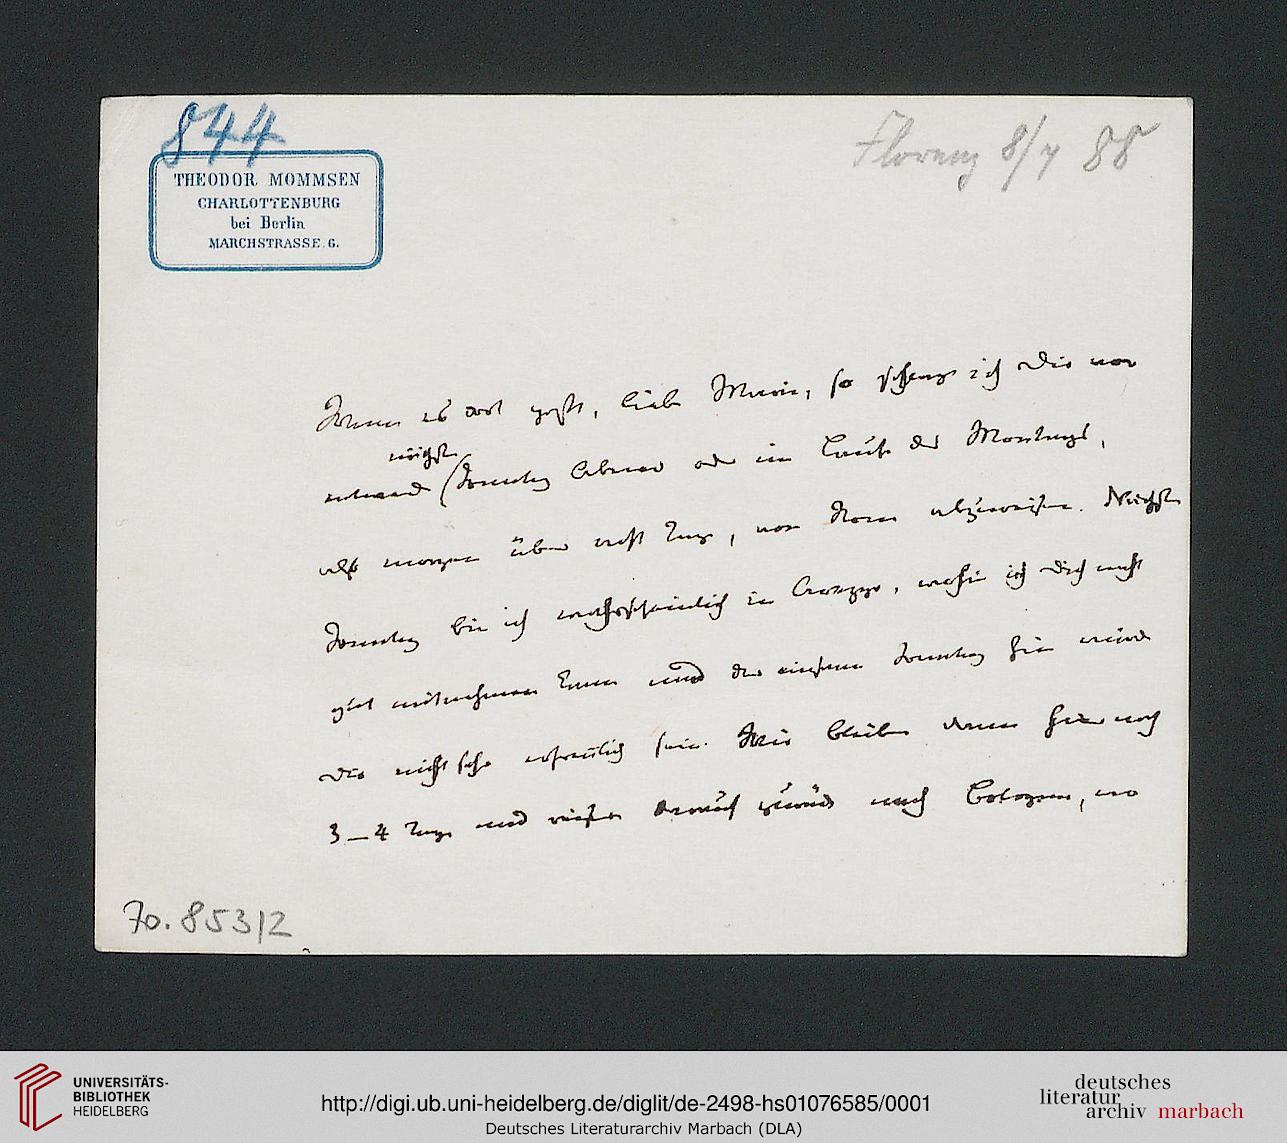 844
Florenz 8/4 88
THEODOR MOMMSEN
CHARLOTTENBURG
bei Berlin
MARCHSTRASSE 6.
Wenn es dort geht, liebe Marie, so ich Dir vor
nächsten
entweder Sonntag Abend oder im Laufe des Montags,
also morgen über acht Tage, von Rom abzureisen. Nächsten
Sonntag bin ich wahrscheinlich in Arezzo, wohin ich Dich nicht
gut mitnehmen kann und der einsame Sonntag hier würde
Dir nicht sehr erfreulich sein. Wir bleiben dann hier noch
3–4 Tage und reisen darauf zurück nach Bologna, wo
70.853/2
UNIVERSITÄTS-
BIBLIOTHEK
HEIDELBERG
http://digi.ub.uni-heidelberg.de/diglit/de-2498-hs01076585/0001
Deutsches Literaturarchiv Marbach (DLA)
deutsches
literatur
archiv marbach